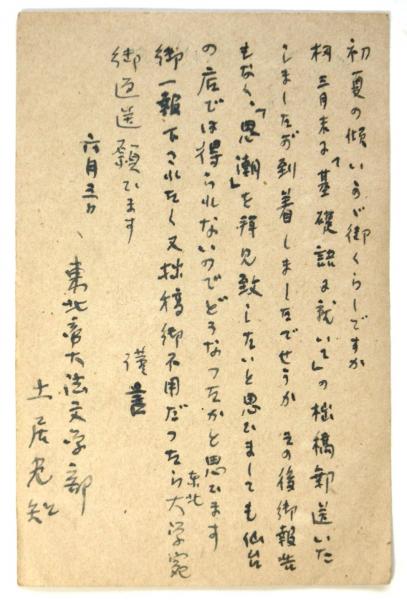 初夏の頃いかが御くらしですか
扨三月末に「基礎語に就いて」の拙稿郵送いた
しましたが到着しましたでせうか その後御報告
もなく、「思潮」を拝見致したいと思ひましても仙台
の店では得られないのでどうなつたかと思ひます
御一報下されたく又拙稿御不用だつたら東北大学宛
御返送願ひます
謹言
六月三日
東北帝大法文学部
土居光知